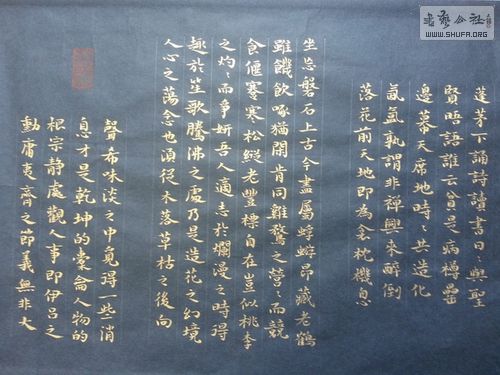 蓬茅下誦詩讀書日々與聖
賢晤語誰云貧是病樽罍
邊幕天席地時々共造化
氤氳孰謂非禪興來醉倒
落花前天地即為衾枕機息
坐忘磐石上古今盡屬蜉蝣昂藏老鶴
雖饑飲啄猶閒肯同雞鶩之營々而競
食偃蹇寒松縱老豐標自在豈似桃李
之灼々而爭妍吾人適志於爛漫之時得
趣於笙歌騰沸之處乃是造花之幻境
人心之蕩念也須從木落草枯之後向
聲希味淡之中覓得一些消
息才是乾坤的橐籥人物的
根宗靜處觀人事即伊呂之
勳庸夷齊之節義無非大
書藝公社
WWW.SHUFA.ORG